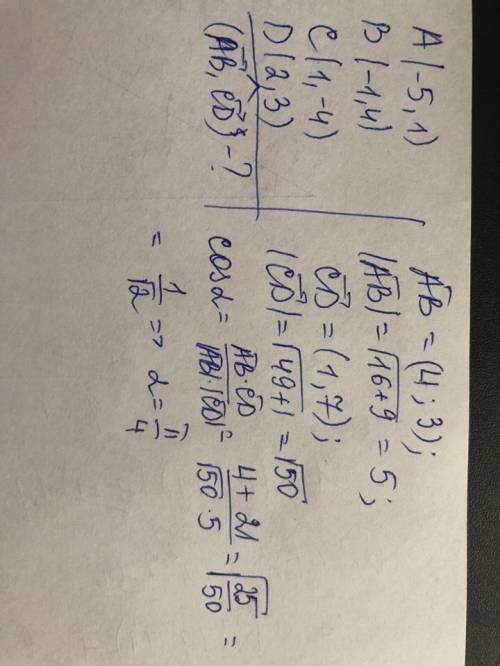 A(-5,1)
B(-1,4)
C(1,-4)
D(2,3)
(AB, CD)^ - ?
AB = (4; 3);
|AB| = √16+9 = 5;
CD = (1,7);
|CD| = √49+1 = √50
cosα = AB·CD / |AB|·|CD| = 4+21 / √50·5 = √25/50 =
= 1/√2 => α = π/4